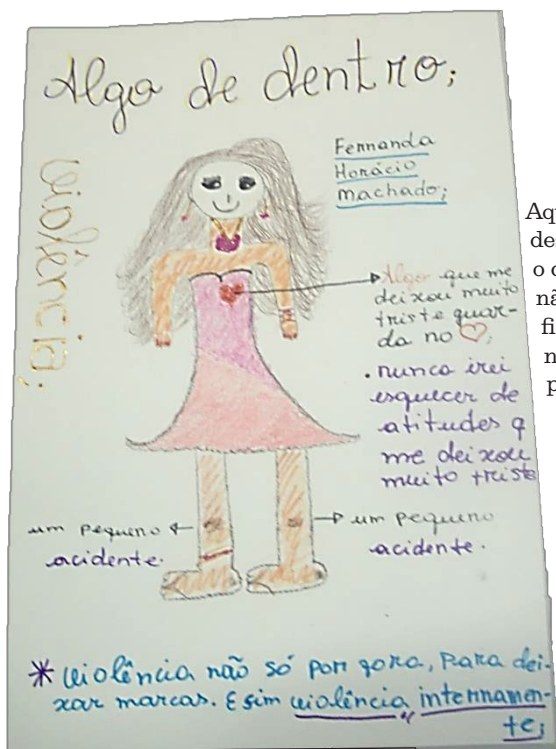 Algo de dentro;
violência;
Fernanda
Horácio
Machado;
Algo que me
deixou muito
triste guar-
da no ♡;
. nunca irei
esquecer de
atitudes q
me deixou
muito triste
um pequeno
acidente.
um pequeno
acidente.
* violência não só por fora, para dei-
xar marcas. E sim violência internamen-
te;